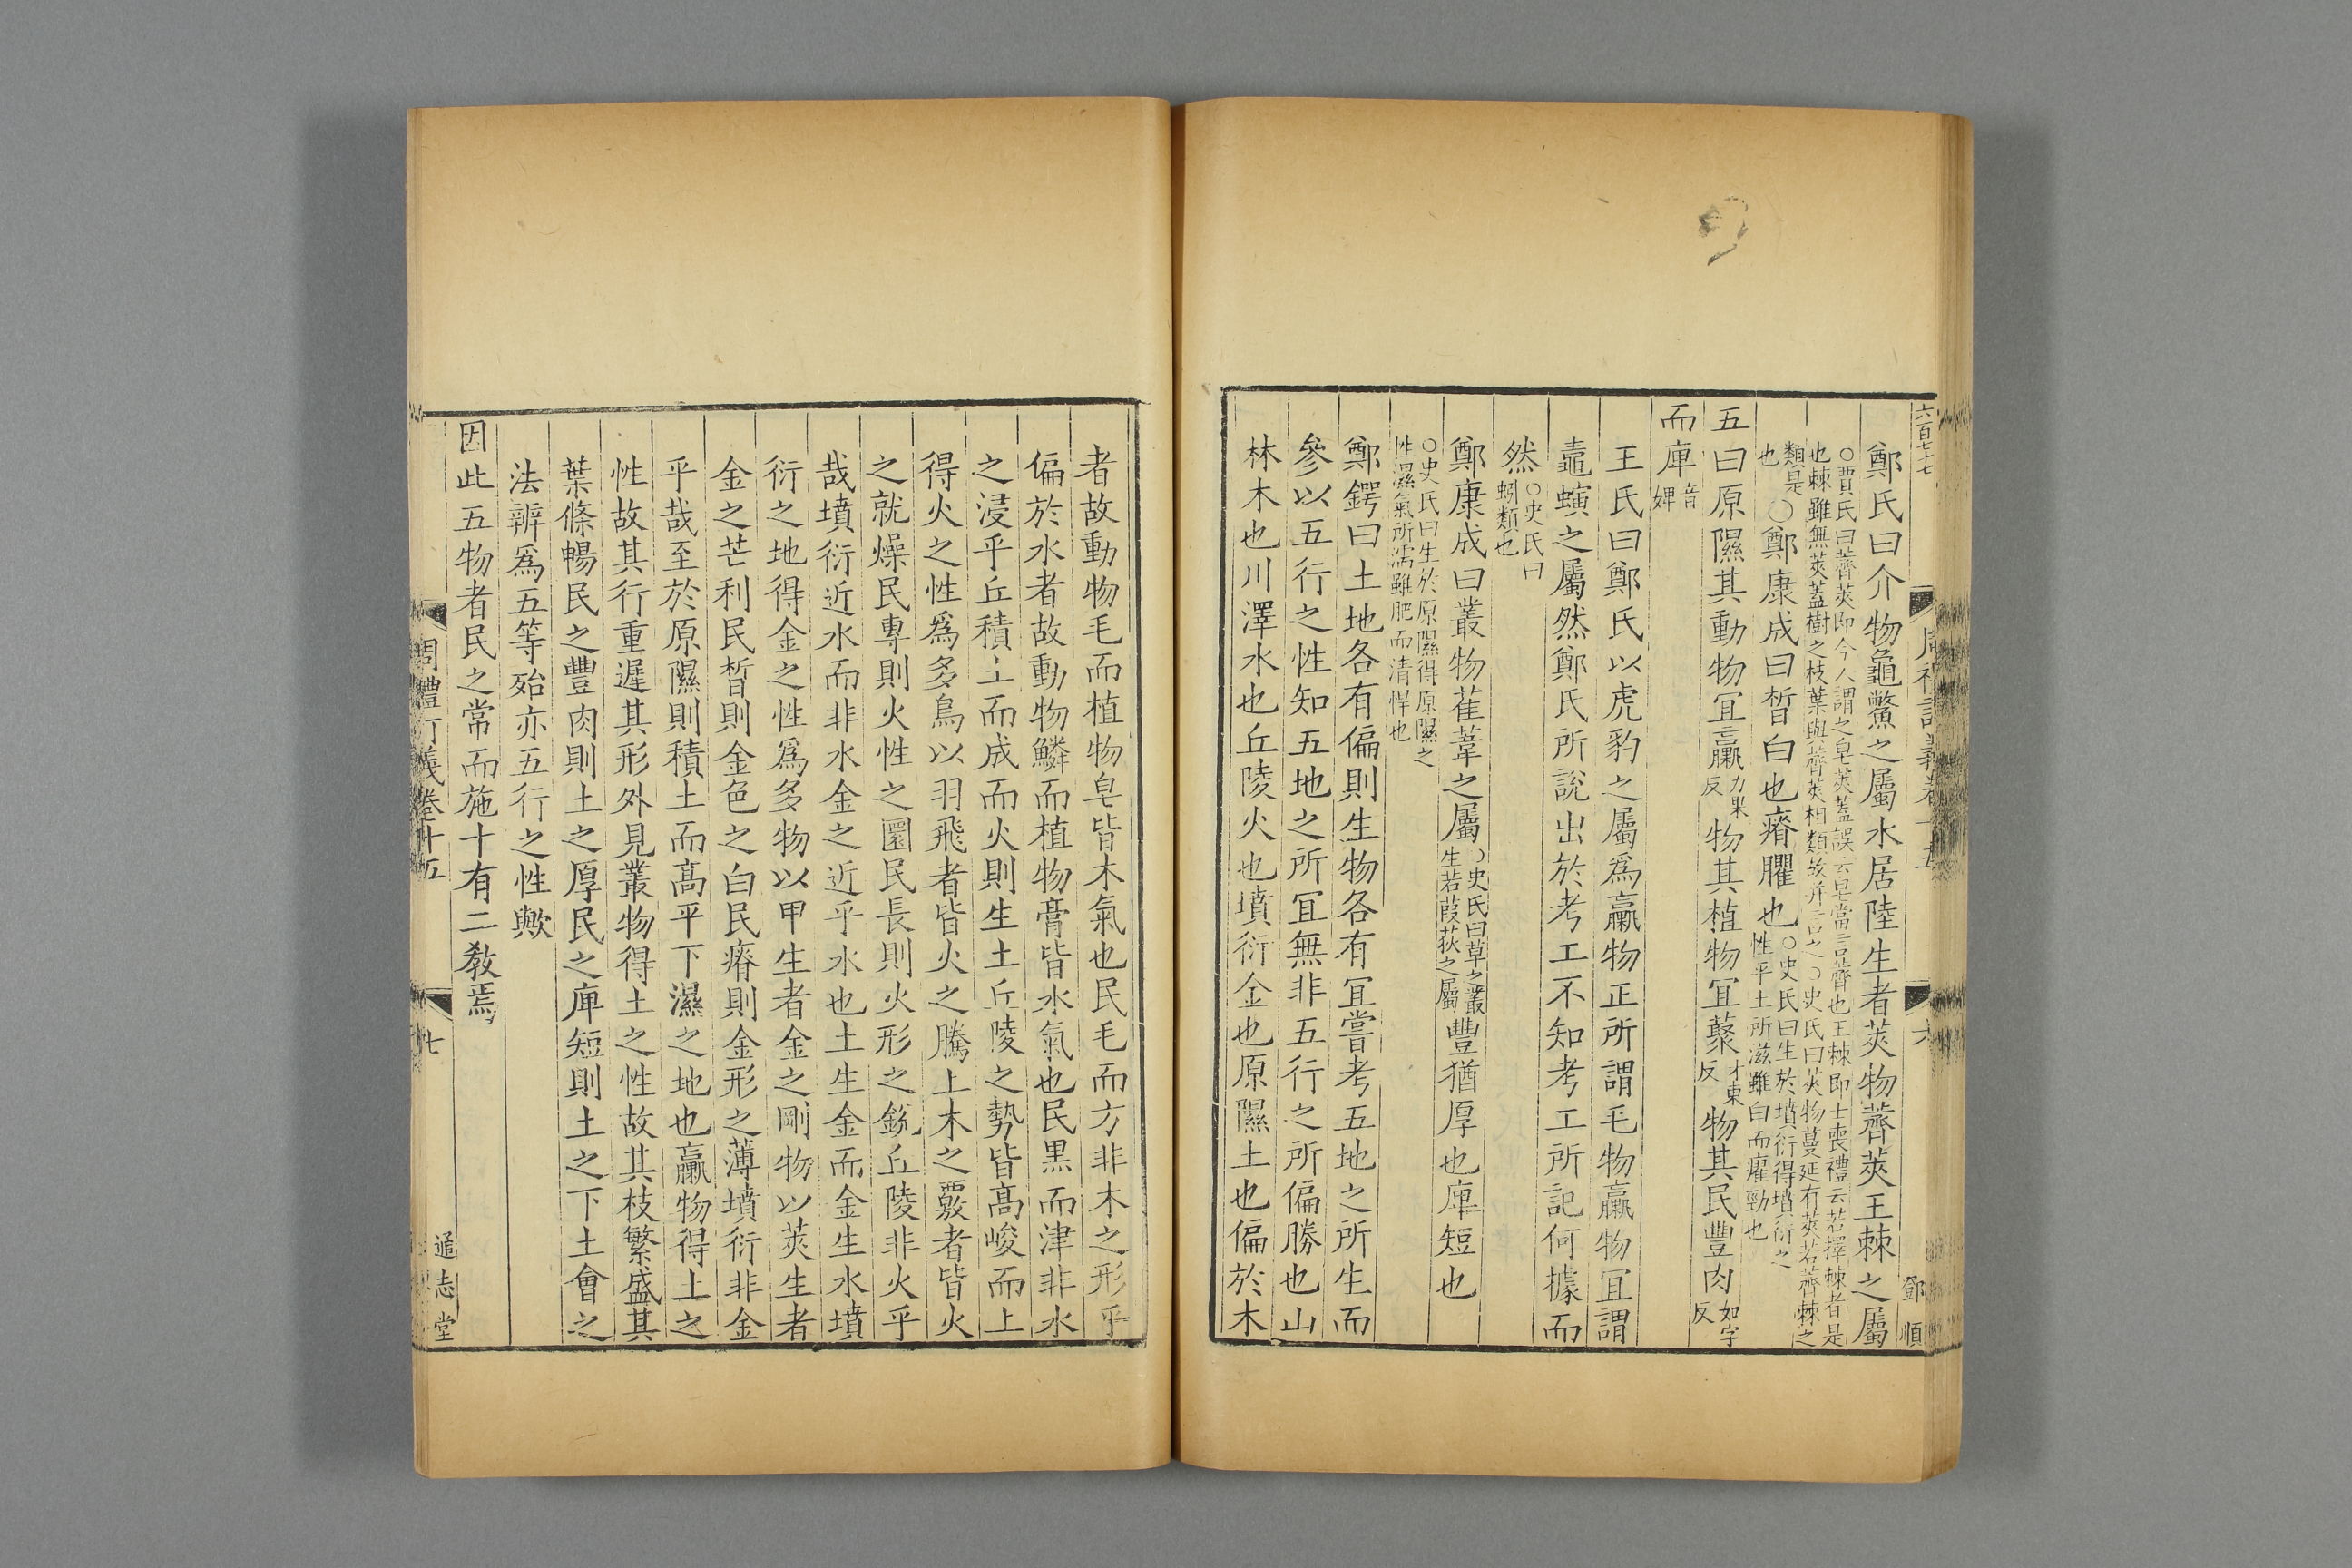 六百七十七
鄧順
鄭氏曰介物龜鱉之屬水居陸生者莢物薺莢王棘之屬
○賈氏曰薺莢即今人謂之皂莢蓋誤云皂當言薺也王棘即士喪禮云若擇棘者是
也棘雖無莢蓋樹之枝葉與薺莢相類故并言之○史氏曰莢物蔓延有莢若薺棘之
類是
也○鄭康成曰晳白也瘠臞也○史氏曰生於墳衍得墳衍之
性平土所滋雖白而癯勁也
五曰原隰其動物冝臝力果反物其植物冝藂才東反物其民豐肉如字反
而庳音婢
王氏曰鄭氏以虎豹之屬爲臝物正所謂毛物臝物冝謂
鼃螾之屬然鄭氏所說出於考工不知考工所記何據而
然○史氏曰蚓類也
鄭康成曰叢物萑葦之屬○史氏曰草之叢生若葭荻之屬豐猶厚也庳短也
○史氏曰生於原隰得原隰之
性濕氣所濡雖肥而清悍也
鄭鍔曰土地各有偏則生物各有冝嘗考五地之所生而
參以五行之性知五地之所冝無非五行之所偏勝也山
林木也川澤水也丘陵火也墳衍金也原隰土也偏於木
者故動物毛而植物皂皆木氣也民毛而方非木之形乎
偏於水者故動物鱗而植物膏皆水氣也民黒而津非水
之浸乎丘積土而成而火則生土丘陵之勢皆高峻而上
得火之性爲多鳥以羽飛者皆火之騰上木之覈者皆火
之就燥民專則火性之圜民長則火形之銳丘陵非火乎
哉墳衍近水而非水金之近乎水也土生金而金生水墳
衍之地得金之性爲多物以甲生者金之剛物以莢生者
金之芒利民晳則金色之白民瘠則金形之薄墳衍非金
乎哉至於原隰則積土而高平下濕之地也臝物得土之
性故其行重遲其形外見叢物得土之性故其枝繁盛其
葉條暢民之豐肉則土之厚民之庳短則土之下土會之
法辨爲五等殆亦五行之性歟
因此五物者民之常而施十有二敎焉
周禮訂義卷十五
七
通志堂